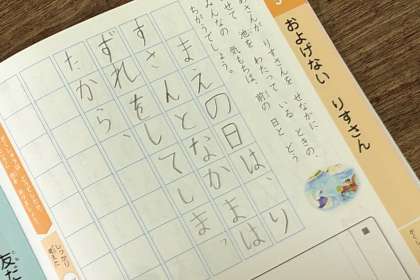 およげない りすさん
めさんが りすさんを せなかに
せて 池を わたって いる ときの、
みんなの 気もちは、前の 日と どう
ちがうでしょう。
まえの日は、り
すさんとなかまは
ずれをしてしまっ
たから、
友だ